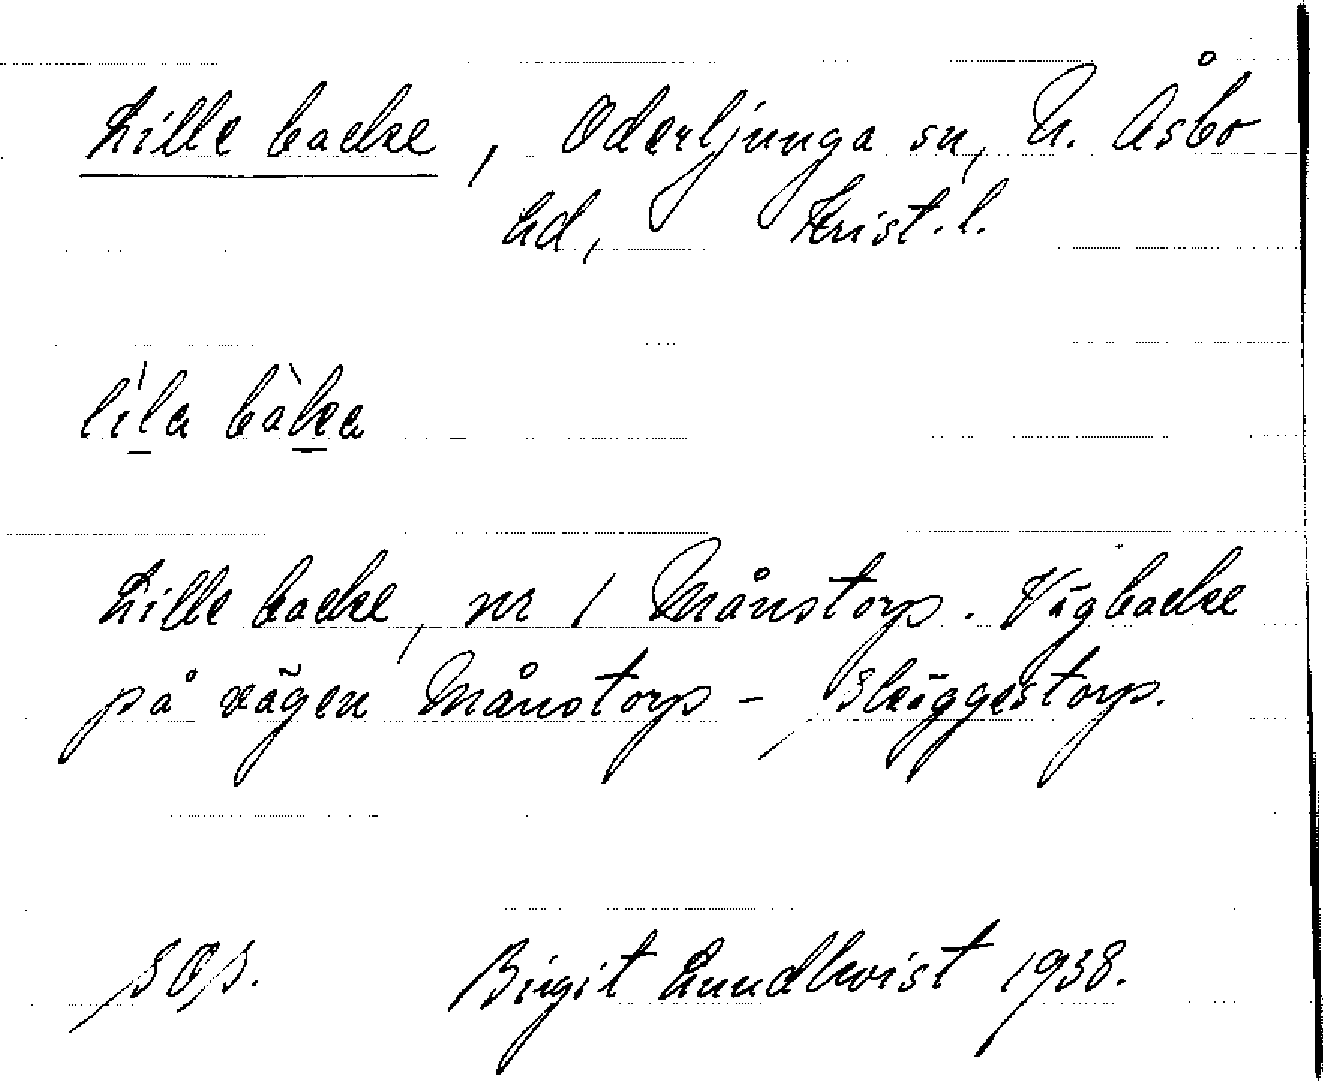 Lille backe, Oderljunga sn, N. Åsbo
hd, Krist. l.
lìla bàka
Lille backe, nr 1 Månstorp. Vägbacke
på vägen Månstorp - Skäggestorp.
SOS. Birgit Lundkvist 1938.